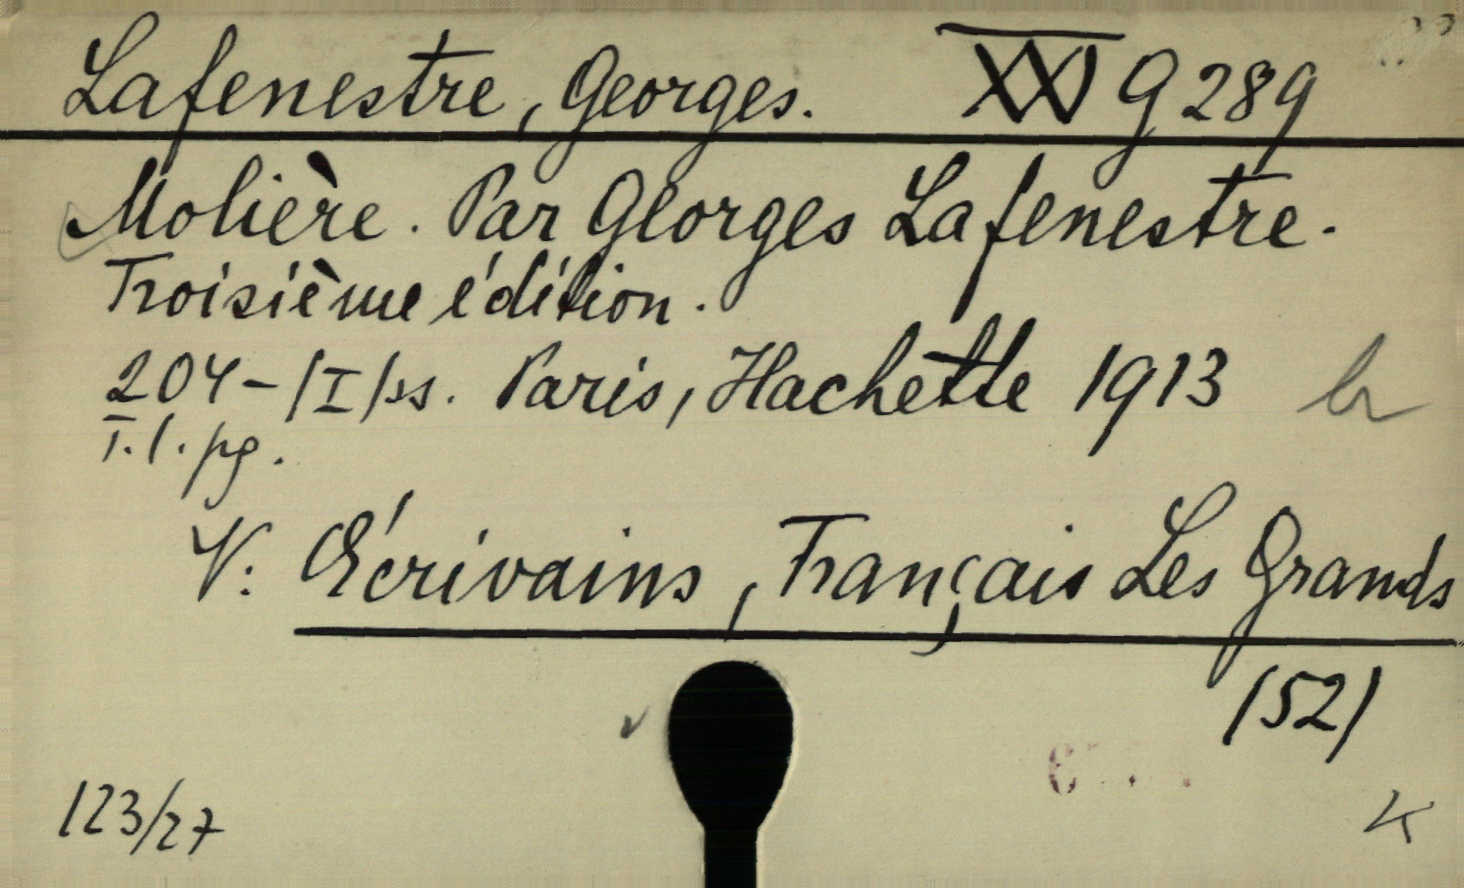 Lafenestre, Georges. XXV G 289
Molière. Par Georges Lafenestre.
Troisième édition.
204-/I/ss. Paris, Hachette 1913
T. l. pg.
V: Écrivains, Français Les Grands
/52/
123/27
K